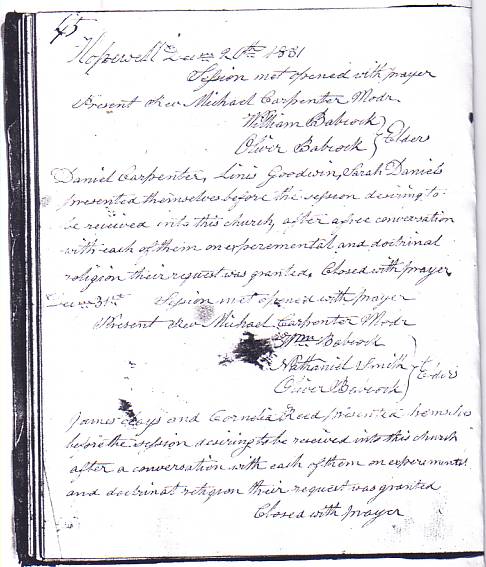 45
Hopewell Decm 20th 1831
Session met opened with prayer
Present Rev Michael Carpenter Modr
William Babcock
Oliver Babcock } Elders
Daniel Carpenter, Linis Goodwin, Sarah Daniels
presented themselves before the session desiring to
be received into this church, after a free conversation
with each of them on experemental and doctrinal
religion their request was granted. Closed with prayer
Decm 31st Session met opened with prayer
Present Rev Michael Carpenter Modr
Wm Babcock
Nathaniel Smith
Oliver Babcock } Elders
James and Cornelia Reed presented themselves
before the session desiring to be received into this church
after a conversation with each of them on experemental
and doctrinal religion their request was granted
Closed with prayer